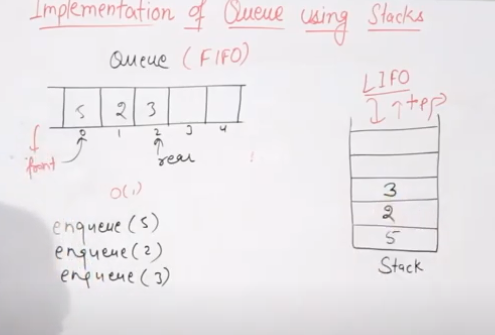 Implementation of Queue using Stacks
Queue (FIFO)
5 2 3
0 1 2 3 4
front
rear
O(1)
enqueue(5)
enqueue(2)
enqueue(3)
LIFO
top
3
2
5
Stack